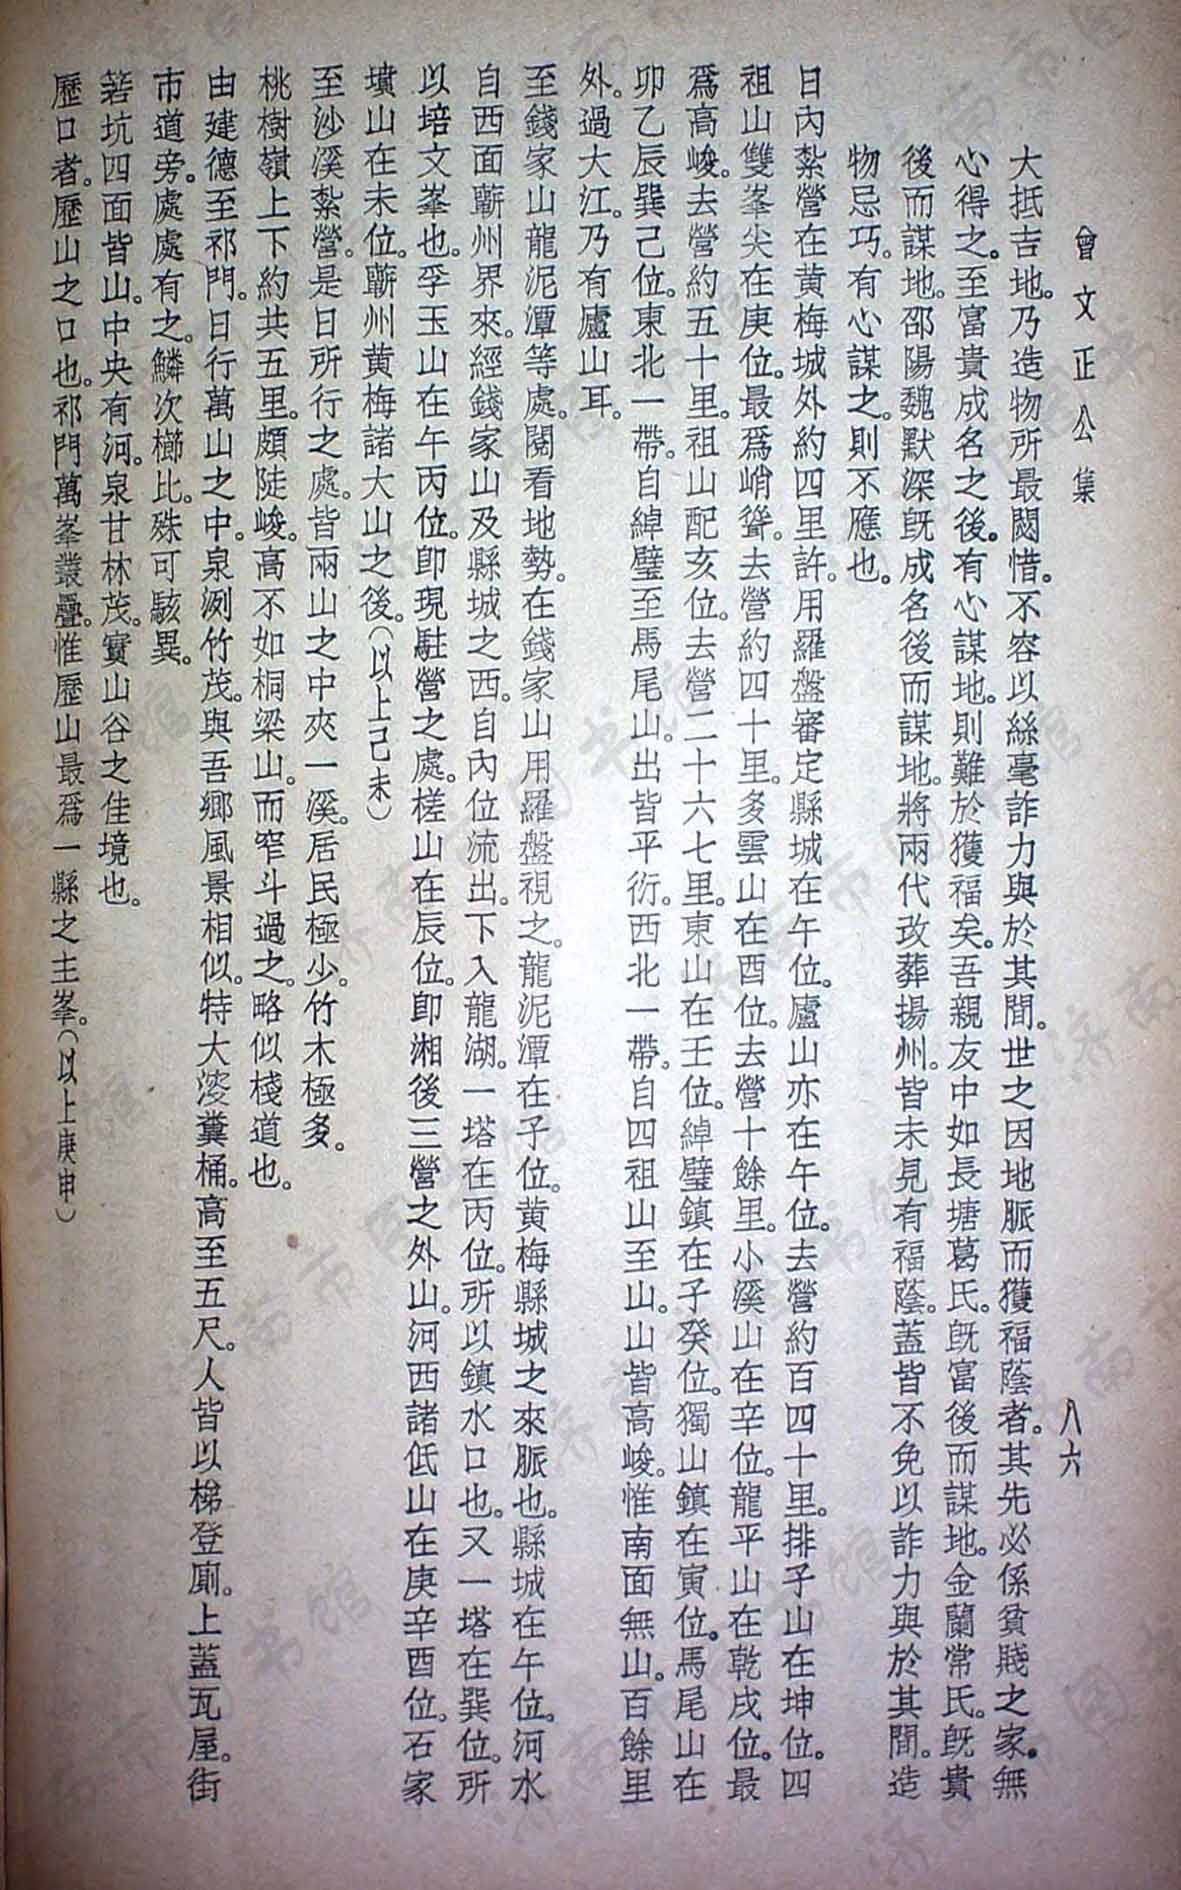 曾文正公集
八六
大抵吉地。乃造物所最閟惜。不容以絲毫詐力與於其間。世之因地脈而獲福蔭者。其先必係貧賤之家。無
心得之。至富貴成名之後。有心謀地。則難於獲福矣。吾親友中如長塘葛氏。既富後而謀地。金蘭常氏。既貴
後而謀地。邵陽魏默深既成名後而謀地。將兩代改葬揚州。皆未見有福蔭。蓋皆不免以詐力與於其間。造
物忌巧。有心謀之。則不應也。
日內紮營在黃梅城外約四里許。用羅盤審定縣城在午位。廬山亦在午位。去營約百四十里。排子山在坤位。四
祖山雙峯尖在庚位。最爲峭聳。去營約四十里。多雲山在酉位。去營十餘里。小溪山在辛位。龍平山在乾戌位。最
爲高峻。去營約五十里。祖山配亥位。去營二十六七里。東山在壬位。綽璧鎮在子癸位。獨山鎮在寅位。馬尾山在
卯乙辰巽己位。東北一帶。自綽璧至馬尾山。出皆平衍。西北一帶。自四祖山至山。山皆高峻。惟南面無山。百餘里
外。過大江。乃有廬山耳。
至錢家山龍泥潭等處。閱看地勢。在錢家山用羅盤視之。龍泥潭在子位。黃梅縣城之來脈也。縣城在午位。河水
自西面蘄州界來。經錢家山及縣城之西。自內位流出。下入龍湖。一塔在丙位。所以鎮水口也。又一塔在巽位。所
以培文峯也。孚玉山在午丙位。卽現駐營之處。槎山在辰位。卽湘後三營之外山。河西諸低山在庚辛酉位。石家
墳山在未位。蘄州黃梅諸大山之後。（以上己未）
至沙溪紮營。是日所行之處。皆兩山之中夾一溪。居民極少。竹木極多。
桃樹嶺上下約共五里。頗陡峻。高不如桐梁山。而窄斗過之。略似棧道也。
由建德至祁門。日行萬山之中。泉洌竹茂。與吾鄉風景相似。特大淩糞桶。高至五尺。人皆以梯登廁。上蓋瓦屋。街
市道旁。處處有之。鱗次櫛比。殊可駭異。
箬坑四面皆山。中央有河。泉甘林茂。實山谷之佳境也。
歷口者。歷山之口也。祁門萬峯叢疊。惟歷山最爲一縣之主峯。（以上庚申）